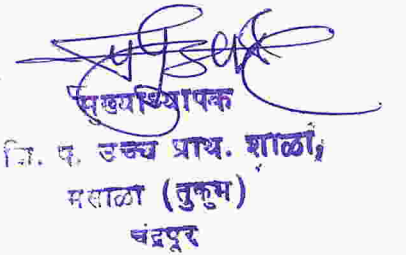 मुख्याध्यापक
जि. प. उच्च प्राथ. शाळा,
मसाळा (तुकुम)
चंद्रपूर